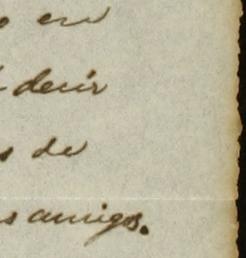 en
decir
s de
s amigos.